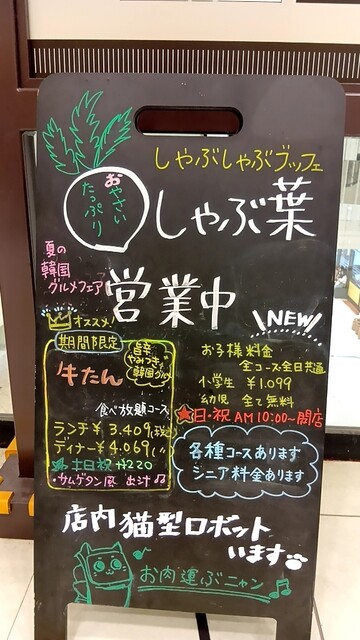 しゃぶしゃぶブッフェ
おやさい
たっぷり
しゃぶ葉
夏の
韓国
グルメフェア
営業中
NEW
オススメ!
期間限定
旨辛
やみつき
韓国グルメ
牛たん
食べ放題コース
ランチ¥3.409(税込)
ディナー¥4.069(〃)
★土日祝 +¥220
・サムゲタン風 出汁♫
お子様料金
全コース全日共通
小学生 ¥1.099
幼児 全て無料
★日・祝 AM10:00~開店
各種コースあります
シニア料金あります
店内猫型ロボット
います
お肉運ぶニャン♫